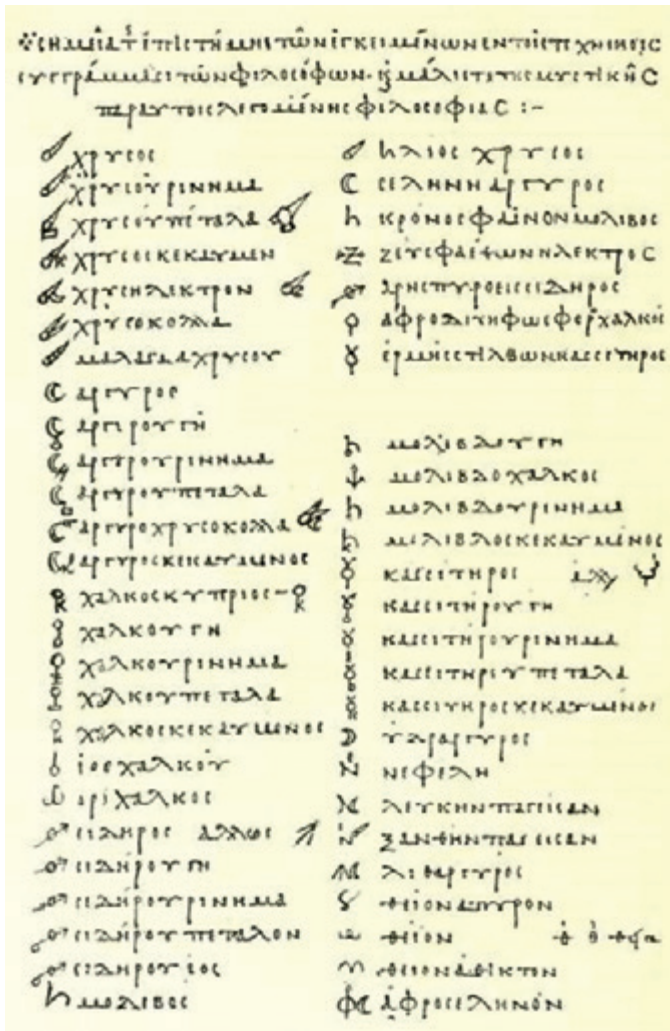 σημεῖα τῆς ἐπιστήμης τῶν ἐγκειμένων ἐν τοῖς τεχνικοῖς
συγγράμμασι τῶν φιλοσόφων· καὶ μάλιστα τῆς μυστικῆς
παρ αὐτοῖς λεγομένης φιλοσοφίας :-
χρυσος
χρυσοὺ ρινημα
χρυσού πέταλα
χρυσος κεκαυμεν
χρυσήλεκτρον
χρυσοκολλα
μαλαγμα χρυσου
αργυρος
αργύρου γῆ
αργύρου ρινημα
αργυρου πεταλα
αργυροχρυσοκολλα
αργυρος κεκαυμενος
χαλκος κυπριος
χαλκου γη
χαλκου ρινημα
χαλκου πεταλα
χαλκος κεκαυμενος
ἰος χαλκοὺ
ορίχαλκος
σιδηρος αλλως
σιδήρου γη
σιδήρου ρινημα
σιδήρου πεταλον
σιδηρου ἰος
μολιβος
ηλιος χρυσος
σεληνη αργυρος
κρόνος φαίνων μολιβος
ζεύς φαέθων ηλεκτρος
ἄρης πυροεις σιδηρος
αφροδιτη φωσφερ χαλκὸς
ἑρμῆς στίλβων κασσιτηρος
μολίβδου γη
μολιβδοχαλκος
μολιβδου ρινημα
μολιβδος κεκαυμένος
κασσιτηρος αλλ
κασσιτήρου γη
κασσιτηρου ρινημα
κασσιτηρου πεταλα
κασσιτηρος κεκαυμένος
ὑδραργυρος
νεφελη
λευκην παγεισαν
ξανθὴν παγεισαν
λιθαργυρος
θειον απυρον
θειον
θειον ἀθικτον
ἀφροσεληνόν